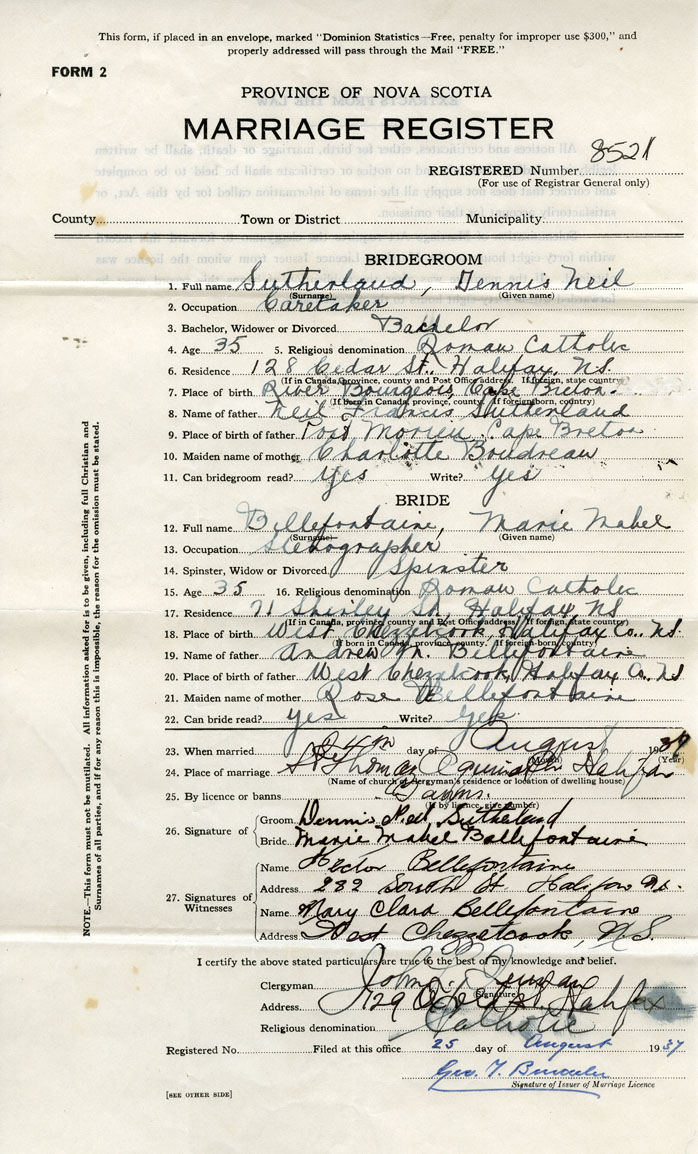 This form, if placed in an envelope, marked "Dominion Statistics—Free, penalty for improper use $300," and
properly addressed will pass through the Mail "FREE."
FORM 2
PROVINCE OF NOVA SCOTIA
MARRIAGE REGISTER
8521
REGISTERED Number
(For use of Registrar General only)
County Town or District Municipality
BRIDEGROOM
1. Full name Sutherland, Dennis Neil
(Surname) (Given name)
2. Occupation Caretaker
3. Bachelor, Widower or Divorced Bachelor
4. Age 35 5. Religious denomination Roman Catholic
6. Residence 128 Cedar St., Halifax, N.S.
(If in Canada, province, county and Post Office address. If foreign, state country)
7. Place of birth River Bourgeois, Cape Breton.
(If born in Canada, province, county. If foreign-born, country)
8. Name of father Neil Francis Sutherland
9. Place of birth of father Port Morien, Cape Breton
10. Maiden name of mother Charlotte Boudreau
11. Can bridegroom read? Yes Write? Yes
BRIDE
12. Full name Bellefontaine, Marie Mabel
(Surname) (Given name)
13. Occupation Stenographer
14. Spinster, Widow or Divorced Spinster
15. Age 35 16. Religious denomination Roman Catholic
17. Residence 71 Shirley St., Halifax, NS
(If in Canada, province, county and Post Office address. If foreign, state country)
18. Place of birth West Chezzetcook, Halifax Co., N.S.
(If born in Canada, province, county. If foreign-born, country)
19. Name of father Andrew M. Bellefontaine
20. Place of birth of father West Chezzetcook, Halifax Co., NS
21. Maiden name of mother Rose Bellefontaine
22. Can bride read? yes Write? yes
23. When married 24th day of August 1937
(Month) (Year)
24. Place of marriage St Thomas Aquinas Halifax
(Name of church or clergyman's residence or location of dwelling house)
25. By licence or banns Banns.
(If by licence, give number)
26. Signature of
Groom Dennis Neil Sutherland
Bride Marie Mabel Bellefontaine
27. Signatures of
Witnesses
Name Hector Bellefontaine
Address 282 South St. Halifax N.S.
Name Mary Clara Bellefontaine
Address West Chezzetcook, N.S.
I certify the above stated particulars are true to the best of my knowledge and belief.
Clergyman John
(Signature)
Address 129 Oxford St. Halifax
Religious denomination Catholic
Registered No. Filed at this office 25 day of August 1937
Geo. T.
Signature of Issuer of Marriage Licence
[SEE OTHER SIDE]
NOTE.—This form must not be mutilated. All information asked for is to be given, including full Christian and
Surnames of all parties, and if for any reason this is impossible, the reason for the omission must be stated.